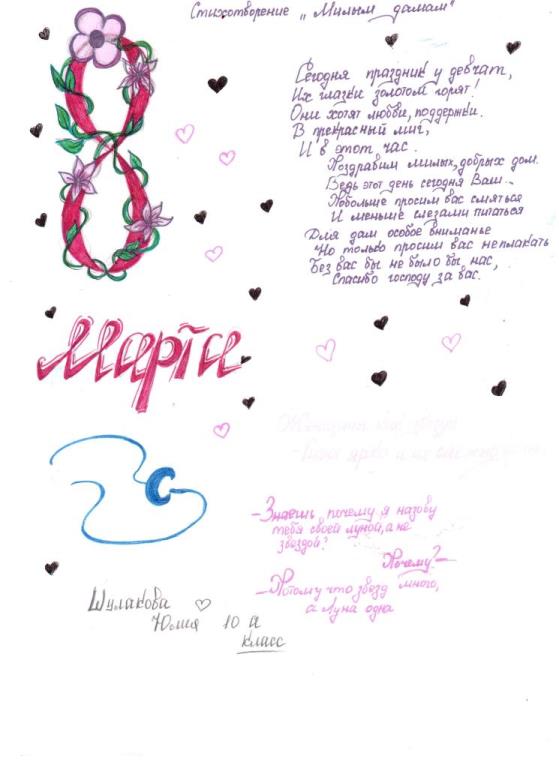 Стихотворение „Милым дамам"
8
Марта
Сегодня праздник у девчат,
Их глазки золотом горят!
Они хотят любви, поддержки.
В прекрасный миг,
И в этот час.
Поздравим милых, добрых дам.
Ведь этот день сегодня Ваш..
Побольше просим вас смеяться
И меньше слезами питаться
Для дам особое вниманье
Но только просим вас не плакать
Без вас бы не было бы нас,
Спасибо господу за вас.
Женщина как звезда
-Знаешь, почему я назову
тебя своей луной, а не
звездой?
Почему?-
-Потому что звезд много,
а Луна одна
Шулакова
Юлия 10 а
класс